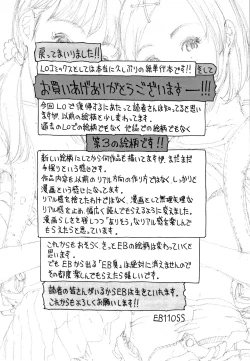 戻ってまいりました!!
LOコミックスとしては本当に久しぶりの単行本です!! そして
お買いあげありがとうございますーー!!!
今回LOで復帰するにあたって読者さんは知ってると思い
ますが、以前の絵柄と少し変わってます。
過去のLOでの絵柄でもなく 他誌での絵柄でもなく
第3の絵柄です!!
新しい絵柄にしてから何作品も描いてますが、まだまだ
手探りという感じです。
作品内容も以前のリアル方向の作り方ではなくしっかりと
漫画という感じになってます。
リアル感を捨てたわけではなく、漫画として無理矢理な
リアル感を止め、幅広く読んでもらえるように変えました。
漫画らしさを残しつつ「ありそう」なリアル感を楽しんで
もらえたらと思っています。
これからもおそらく きっとEBの絵柄は変わっていくと
思います。
でも EBから出る「EB臭」は絶対に消えませんので
その都度 楽しんでもらえたら嬉しいです。
読者の皆さんがいるからEBは生きていれます。
これからもよろしくお願いします!!
EB110SS